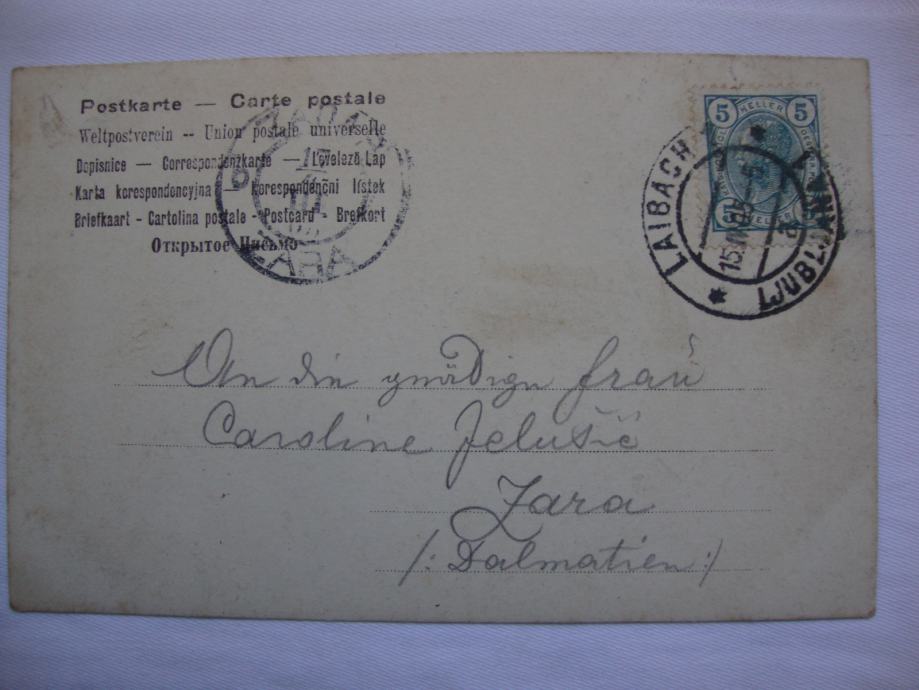 Postkarte — Carte postale
Weltpostverein -- Union postale universelle
Dopisnice — Correspondenzkarte — Levelező Lap
Karta korespondencyjna — Korespondenční lístek
Briefkaart - Cartolina postale - Postcard - Brefkort
Открытое Письмо
ZARA
5 HELLER 5
LAIBACH
LJUBLJANA
An die gnädige Frau
Caroline Jelušić
Zara
/: Dalmatien :/